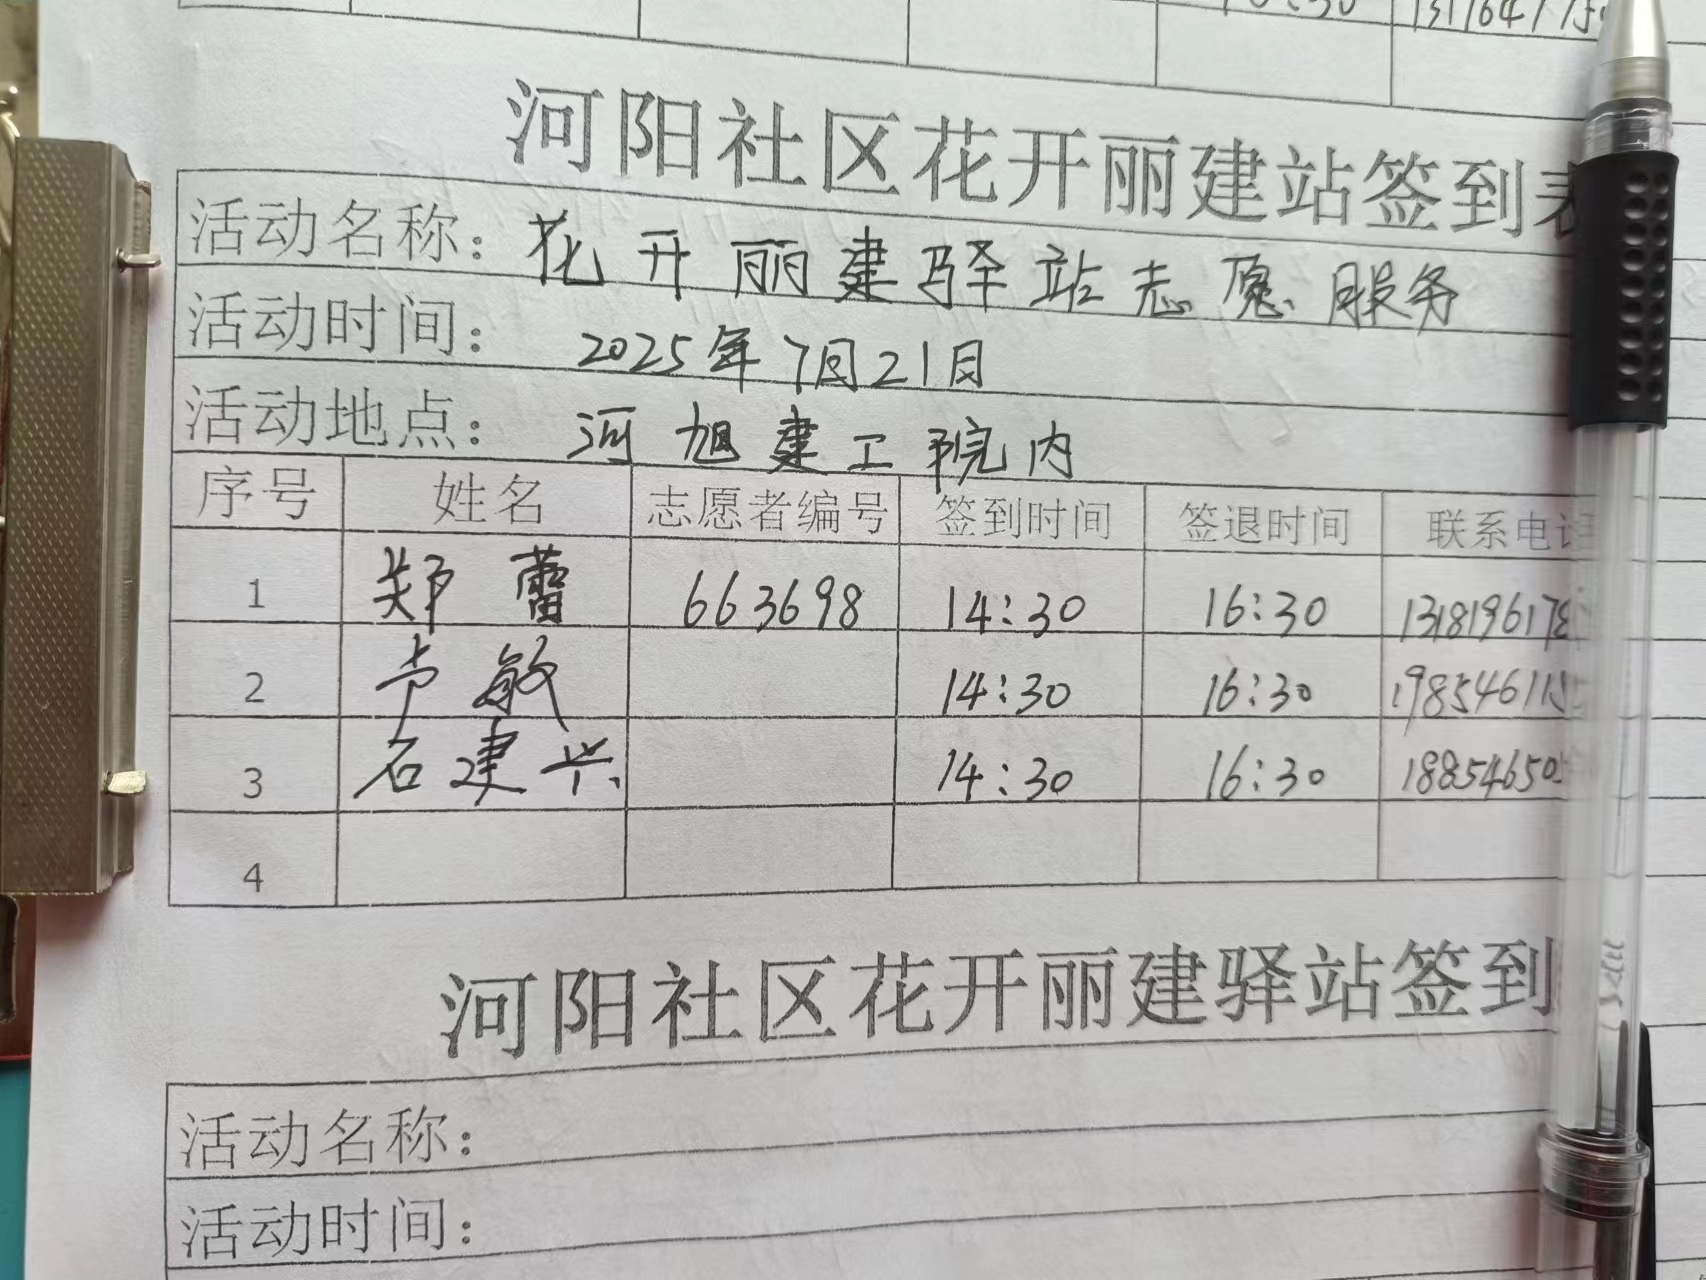 河阳社区花开丽建站签到表
活动名称：花开丽建驿站志愿服务
活动时间：2025年7月21日
活动地点：河旭建工院内
序号 姓名 志愿者编号 签到时间 签退时间 联系电话
1 郑蕾 663698 14:30 16:30 1318196178
2 卢敏 14:30 16:30 198546115
3 石建兴 14:30 16:30 188546505
4
河阳社区花开丽建驿站签到
活动名称：
活动时间：